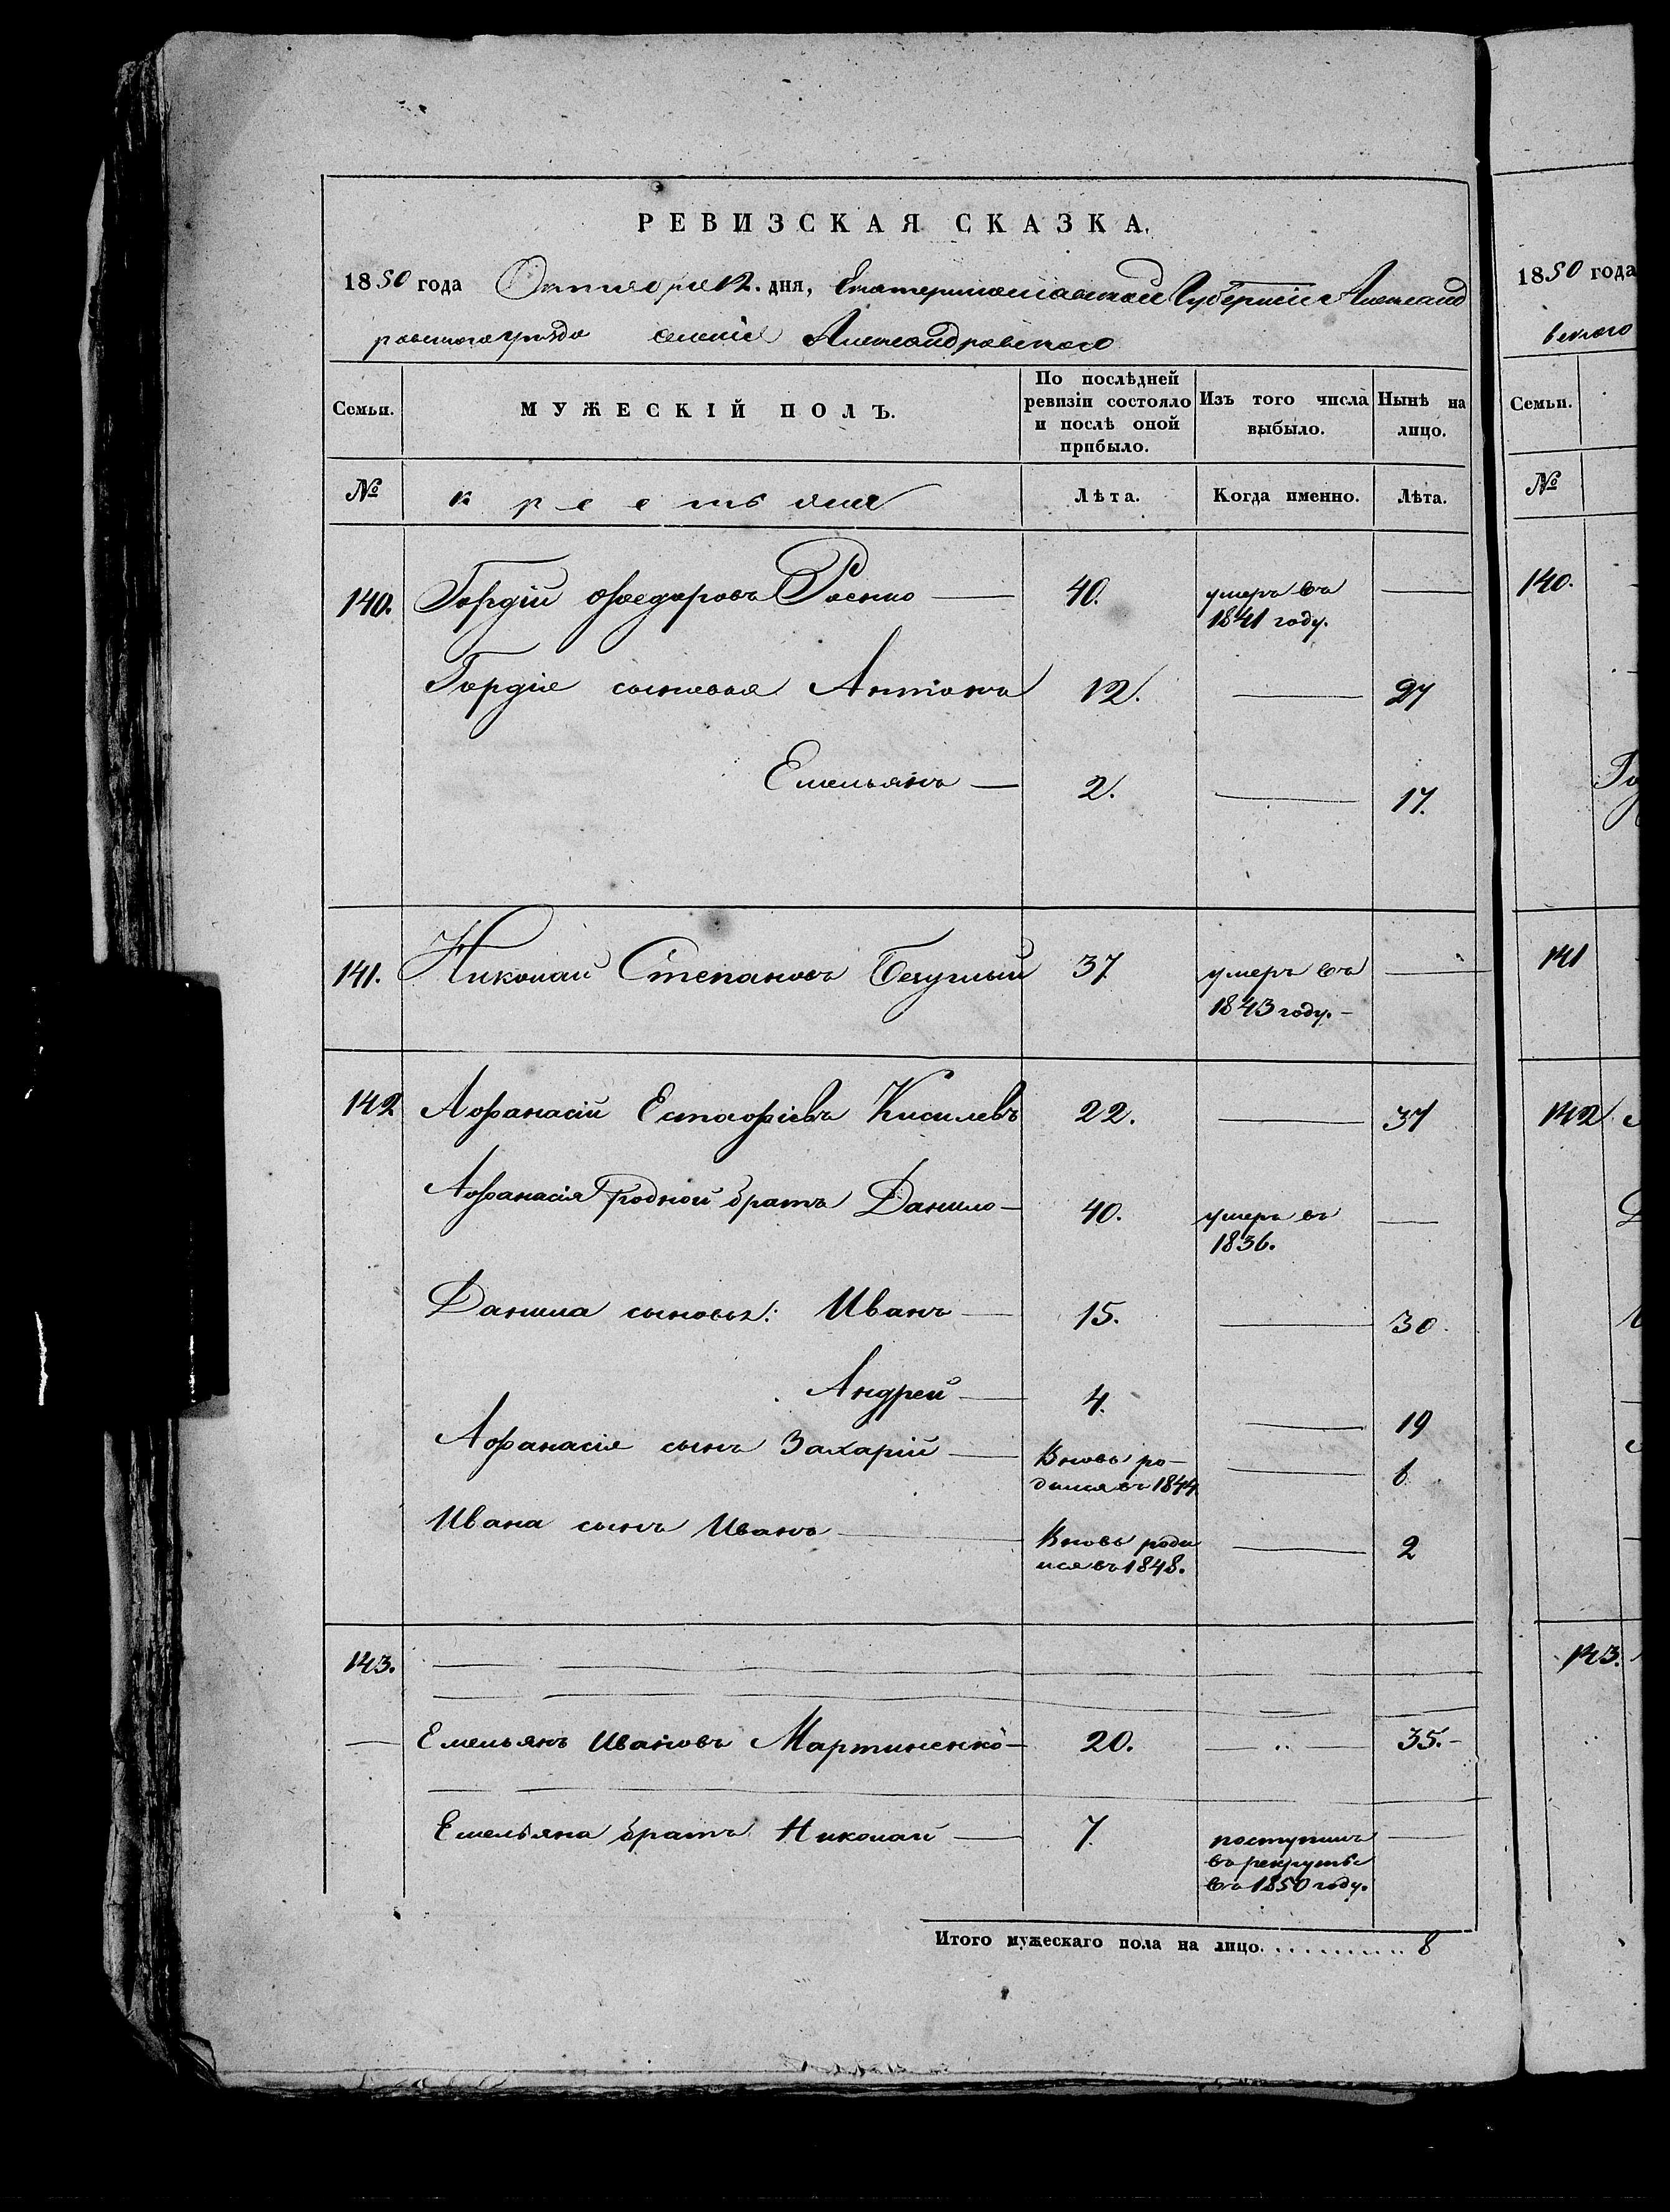 РЕВИЗСКАЯ СКАЗКА.
1850 года Октября 12. дня, Екатеринославской Губерніи Александ
ровскаго уѣзда селенія Александровскаго
Семьи. МУЖЕСКІЙ ПОЛЪ. По послѣдней ревизіи состояло и послѣ оной прибыло. Изъ того числа выбыло. Нынѣ на лицо.
№ крестьяне Лѣта. Когда именно. Лѣта.
140. Гордій Федоровъ 40. умеръ въ
1841 году.
Гордія сыновья Антонъ 12. 27
Емельянъ 2. 17.
141. Николай Степановъ Безуглый 37 умеръ въ
1843 году.
142 Афанасій Естафіевъ Кисилевъ 22. 37
Афанасія родной братъ Данило 40. умеръ въ
1836.
Данила сыновья: Иванъ 15. 30.
Андрей 4. 19
Афанасія сынъ Захарій Вновь ро-
дился въ 1844. 6
Ивана сынъ Иванъ Вновь роди
лся въ 1848. 2
143.
Емельянъ Ивановъ Мартиненко 20. 35.
Емельяна братъ Николай 7 поступилъ
въ рекруты
въ 1850 году.
Итого мужескаго пола на лицо. 8
1850 года
вскаго
Семьи.
№
140.
141
142
143.